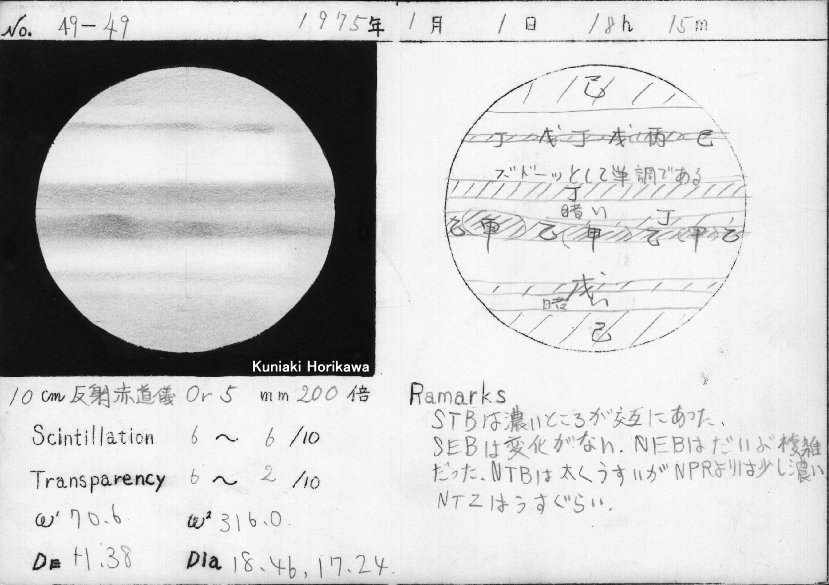 No. 49-49 1975年 1月 1日 18h 15m
己
丁 戊 丁 戊 丙 己
ズドーッとして単調である
丁
暗い
丁
乙 甲 乙 甲 乙 甲 乙
戊
暗い
己
Kuniaki Horikawa
10cm 反射赤道儀 Or 5 mm 200倍
Scintillation 6 ~ 6 /10
Transparency 6 ~ 2 /10
ω¹ 70.6 ω² 316.0
DE +1.38 Dia 18.46, 17.24
Ramarks
STBは濃いところが交互にあった、
SEBは変化がない、NEBはだいぶ複雑
だった、NTBは太くうすいがNPRよりは少し濃い
NTZはうすぐらい.